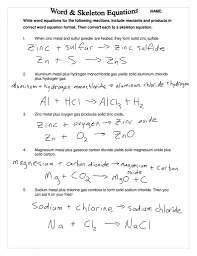 Word & Skeleton Equations NAME:
Write word equations for the following reactions. Include reactants and products in
correct word equation format. Then convert each to a skeleton equation.
1. When zinc metal and sulfur powder are heated, they form solid zinc sulfide.
Zinc + sulfur → zinc sulfide
Zn + S → ZnS
2. Aluminum metal plus hydrogen monochloride gas yields solid aluminum chloride
plus hydrogen gas.
aluminum + hydrogen monochloride → aluminum chloride + hydrogen
Al + HCl → AlCl3 + H2
3. Zinc metal plus oxygen gas produces solid zinc oxide.
Zinc + oxygen → zinc oxide
Zn + O2 → ZnO
4. Magnesium metal plus carbon dioxide gas yields solid magnesium oxide plus
solid carbon.
magnesium + carbon dioxide → magnesium + carbon
oxide
Mg + CO2 → MgO + C
5. Sodium metal plus chlorine gas combine to form solid sodium chloride. Then you
can eat it on your fries!
Sodium + chlorine → sodium chloride
Na + Cl2 → NaCl